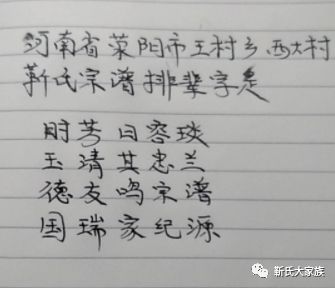 河南省荥阳市王村乡西大村
靳氏宗谱排辈字是
时芳日容琰
玉清其忠兰
德友鸣宗谱
国瑞家纪源
靳氏大家族